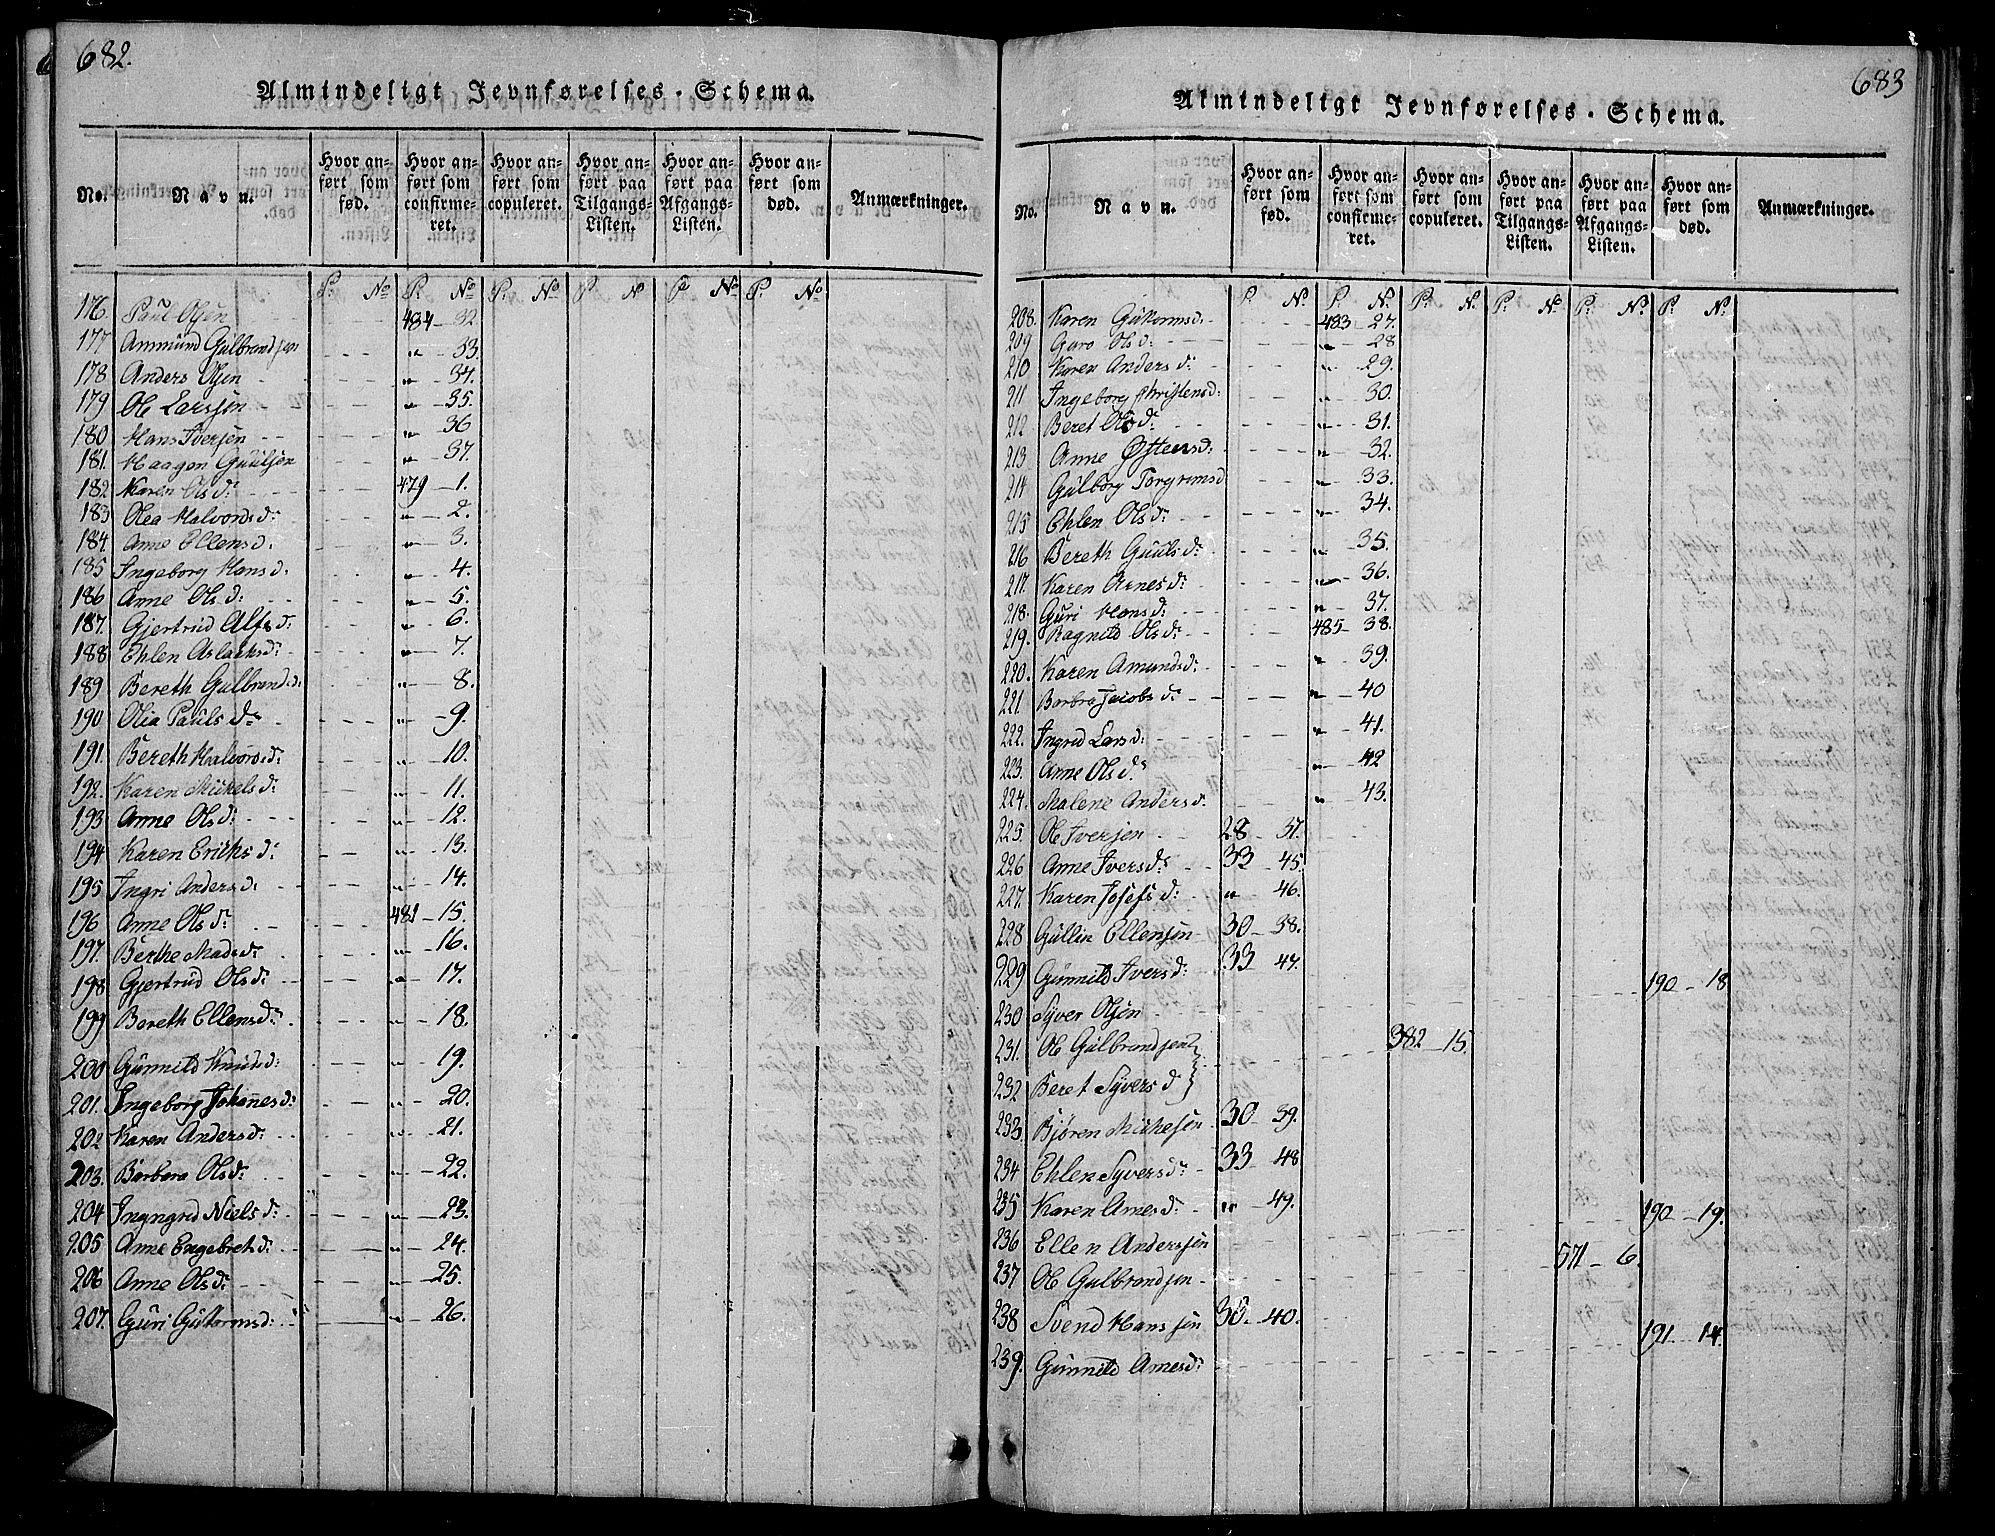 682.
Almindeligt Jevnførelses-Schema.
No. Navn. Hvor anført som fød. Hvor anført som confirmeret. Hvor anført som copuleret. Hvor anført paa Tilgangs-Listen. Hvor anført paa Afgangs-Listen. Hvor anført som død. Anmærkninger.
P. No P. No P. No P. No P. No P. No
176. Paul Olsen 484 - 32
177 Ammund Gulbrandsen " - 33.
178 Anders Olsen " - 34.
179 Ole Larssen " - 35.
180 Hans Iversen " - 36
181. Haagen Guulsen " - 37.
182 Karen Olsd: 479 - 1.
183 Olea Halvorsd: " - 2.
184 Anne Ellensd. " - 3.
185 Ingeborg Hansd. " - 4.
186 Anne Olsd: " - 5.
187. Gjertrud Alfsd: " - 6.
188 Ehlen Aslachsd: " - 7.
189 Bereth Gulbrandsd: " - 8.
190 Olia Paulsd: " - 9.
191. Bereth Halvorsd: " - 10.
192. Karen Mickelsd: " - 11.
193 Anne Olsd: " - 12.
194 Karen Erichsd: " - 13.
195 Ingri Andersd. " - 14.
196 Anne Olsd: 481 - 15.
197. Berthe Madsd: " - 16.
198 Gjertrud Olsd: " - 17.
199 Bereth Ellensd: " - 18.
200 Gunnild Knudsd: " - 19.
201. Ingeborg Johanesd: " - 20.
202 Karen Andersd: " - 21.
203. Barbara Olsd: " - 22.
204 Ingngrid Nielsd: " - 23.
205 Anne Engebretd: " - 24.
206 Anne Olsd: " - 25.
207. Guri Guttormsd: " - 26.
683
Almindeligt Jevnførelses-Schema.
No. Navn. Hvor anført som fød. Hvor anført som confirmeret. Hvor anført som copuleret. Hvor anført paa Tilgangs-Listen. Hvor anført paa Afgangs-Listen. Hvor anført som død. Anmærkninger.
P. N. P. N. P. N. P. No P. No P. No
208. Karen Guttormsd: 483 - 27.
209 Guro Olsd: " - 28
210 Karen Andersd: " - 29.
211 Ingeborg Christensd: " - 30.
212 Beret Olsd: " - 31.
213 Anne Østensd: " - 32.
214 Gulborg Torgrimsd " - 33.
215 Ehlen Olsd: " - 34.
216 Bereth Guulsd: " - 35.
217. Karen Arnesd: " - 36.
218. Guri Hansd: " - 37.
219. Ragnild Olsd: 485 - 38.
220. Karen Amundsd: " - 39.
221. Barbra Jacobsd: " - 40
222. Ingrid Larsd: " - 41.
223. Anne Olsd: " - 42
224. Malene Andersd: " - 43.
225. Ole Iversen 28 - 37.
226 Anne Iversd: 33 - 45.
227. Karen Josefsd: " - 46.
228 Gullin Ellensøn 30 - 38.
229 Gunnild Iversd: 33 - 47.
230 Syver Olsøn 190 - 18
231. Ole Gulbrandsen
232 Beret Syversd: } 382 - 15.
233. Bjøren Mickelsøn 30 - 39.
234 Ehlen Syversd: 33 - 48
235 Karen Arnesd: " - 49.
236 Ellen Anderssøn 190 - 19.
237 Ole Gulbrandsen 571 - 6.
238 Svend Hanssøn 30. - 40.
239. Gunnild Arnesd: 191 - 14.